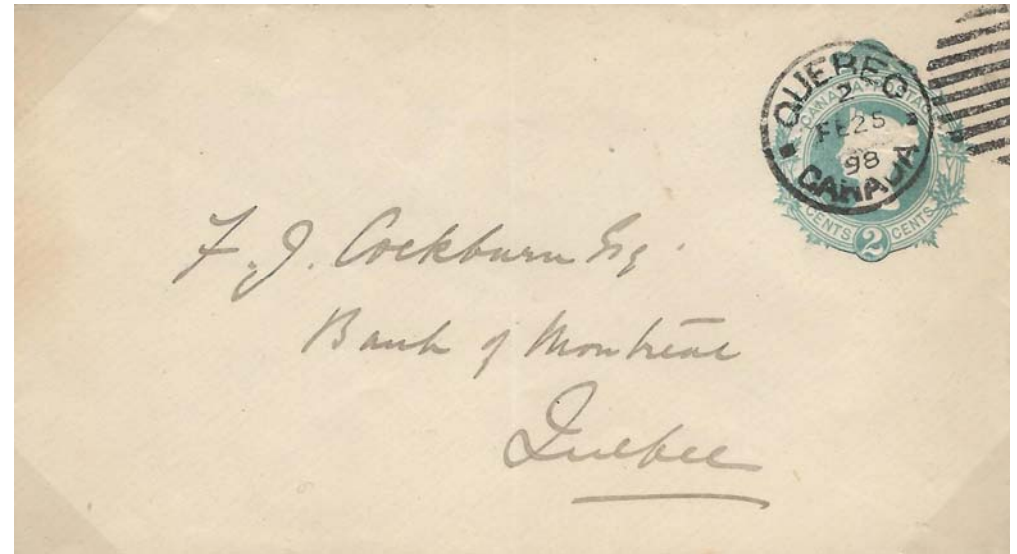 QUEBEC
2
FE 25
98
CANADA
CANADA POSTAGE
CENTS 2 CENTS
F. J. Cockburn Esq.
Bank of Montreal
Quebec